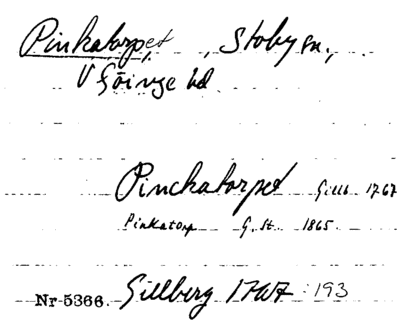 Pinkatorpet, Stoby sn.,
V Göinge hd
Pinckatorpet Gillb 1767
Pinkatorp G. St. 1865.
Nr 5366. Gillberg 1767: 193